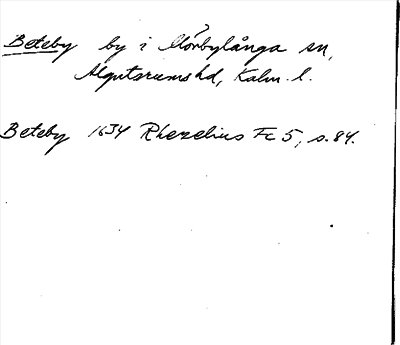 Beteby by i Mörbylånga sn,
Algutsrums hd, Kalm. l.
Beteby 1634 Rhezelius Fc 5, s. 84.